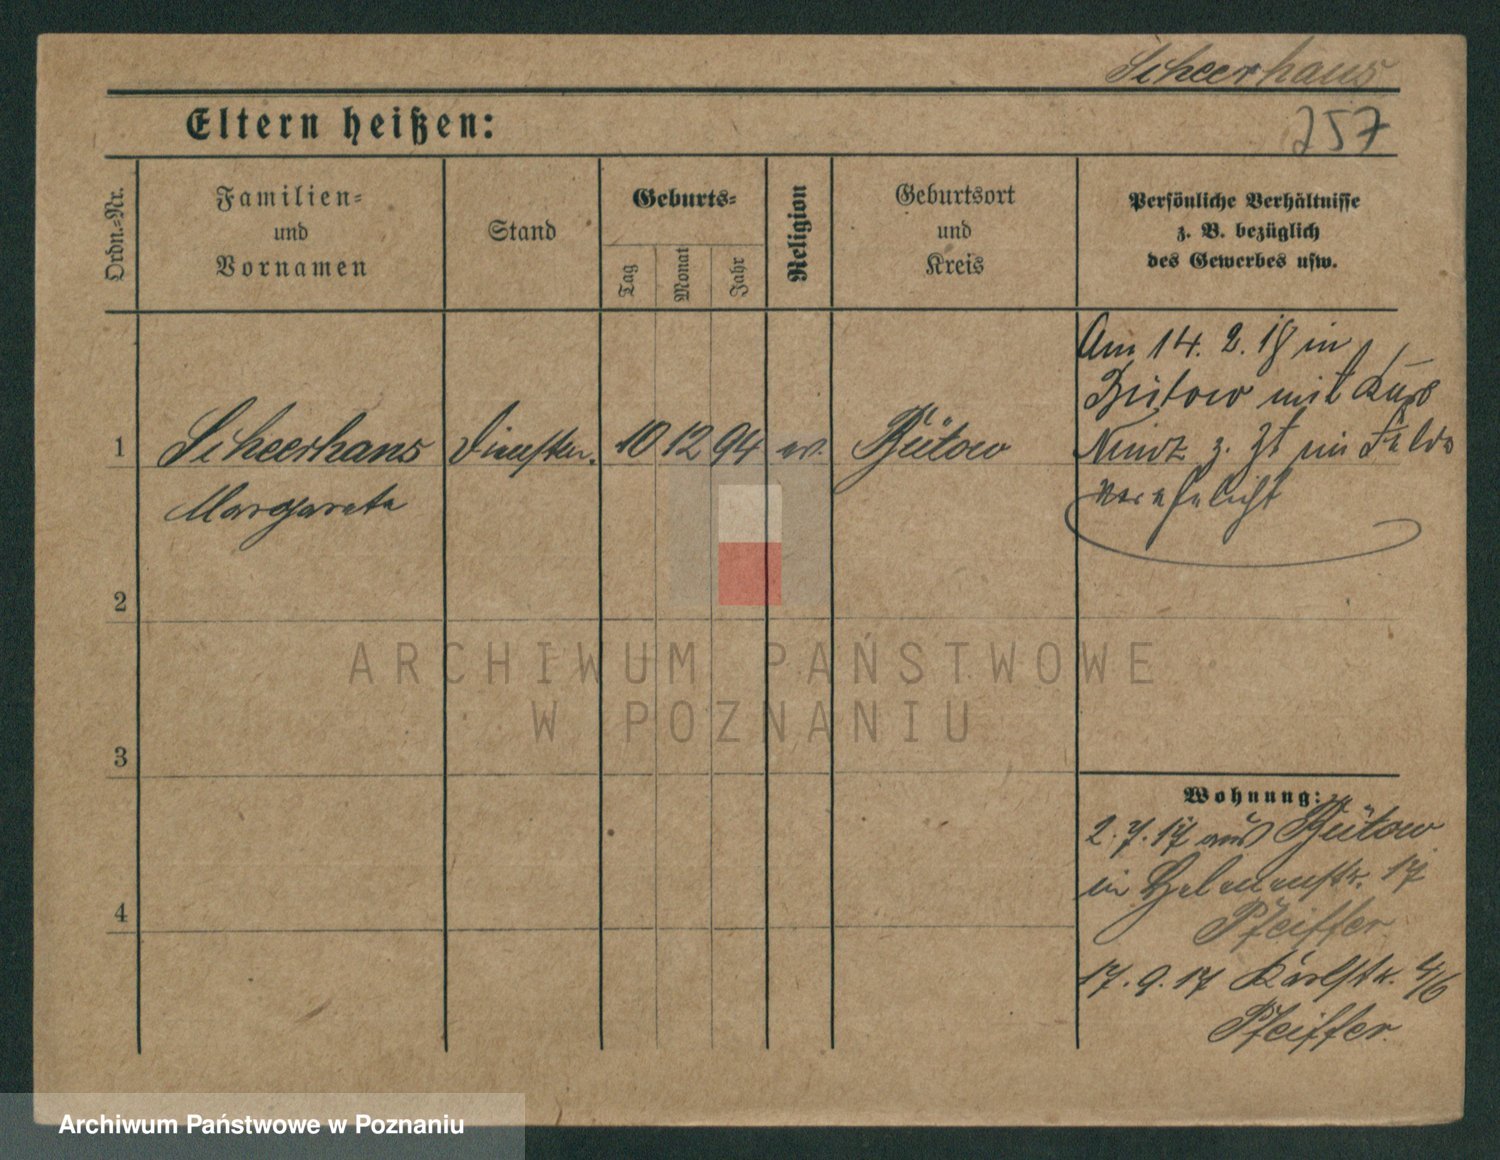 Scheerhans
Eltern heißen:
257
Ordn.-Nr.
Familien-
und
Vornamen
Stand
Geburts-
Tag
Monat
Jahr
Religion
Geburtsort
und
Kreis
Persönliche Verhältnisse
z. B. bezüglich
des Gewerbes usw.
Am 14. 2. 18 in
Bütow mit
1 Scheerhans 10 12 94 ev. Bütow
z. Zt im Felde
Margarete
verehelicht
2
ARCHIWUM PAŃSTWOWE
W POZNANIU
3
Wohnung:
2. 7. 17 aus Bütow
in Helenenstr. 17
Pfeiffer
4
17. 9. 17 Karlstr. 4/6
Pfeiffer.
Archiwum Państwowe w Poznaniu